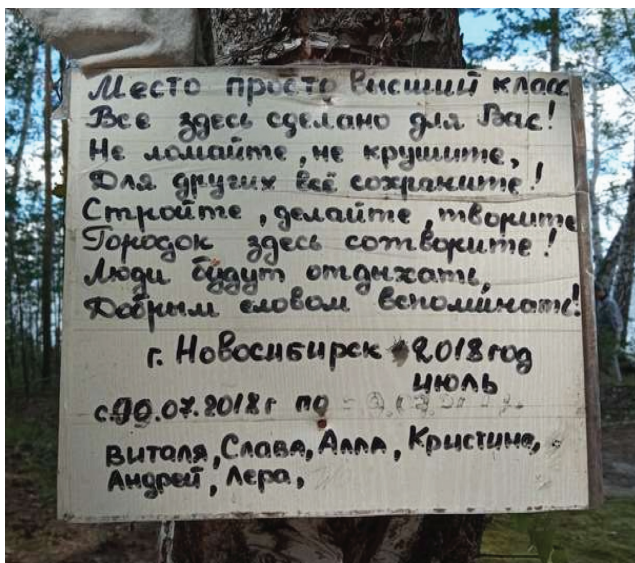 Место просто высший класс
Все здесь сделано для Вас!
Не ломайте, не крушите,
Для других всё сохраните!
Стройте, делайте, творите
Городок здесь сотворите!
Люди будут отдыхать,
Добрым словом вспоминать!
г. Новосибирск 2018 год
июль
.07.2018г по
Виталя, Слава, Алла, Кристина,
Андрей, Лера,